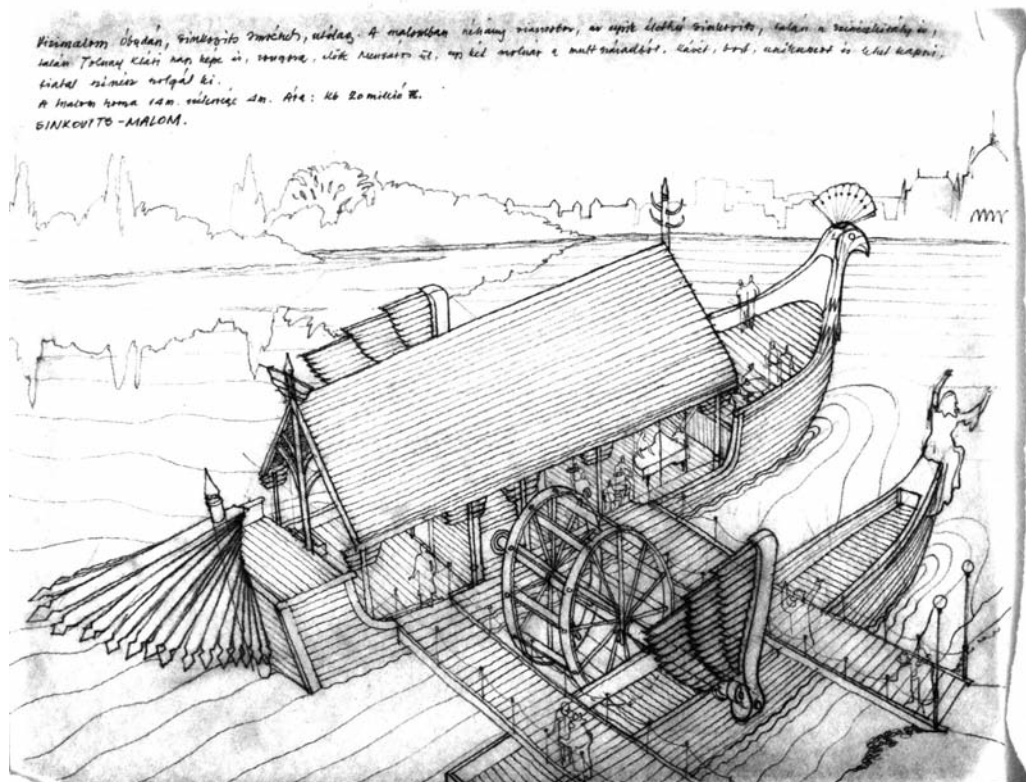 Vizimalom Óbudán, Sinkovits Imrének, utólag. A malomban néhány viaszszobor, az egyik élethű Sinkovits, talán a
talán Tolnay Klári nagy képe is, zongora, előtt ül, egy két molnár a mult századból. Kávét, bort, unikumot is lehet kapni,
fiatal színész szolgál ki.
A malom hossza 14 m. szélessége 4 m. Ára: kb 20 millió Ft.
SINKOVITS-MALOM.